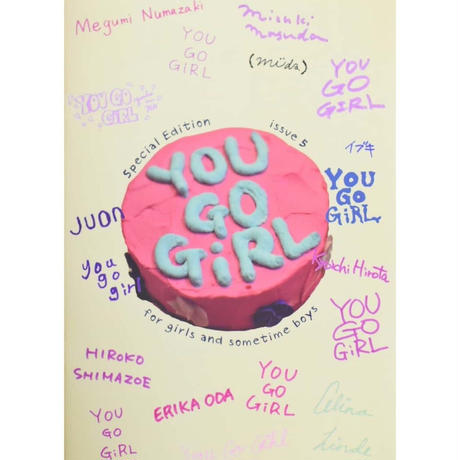 Megumi Numazaki
Misuki
Masuda
(müda)
YOU
GO
GiRL
YOU
GO
GIRL
YOU GO
GIRL
Special Edition
issue 5
YOU
GO
GiRL
イブキ
YOU
GO
GiRL
JUON
you
go
girl
Hirota
for girls and sometime boys
YOU
GO
GiRL
HIROKO
SHIMAZOE
ERIKA ODA
YOU
GO
GiRL
YOU
GO
GiRL
YOU GO GIRL
Linde